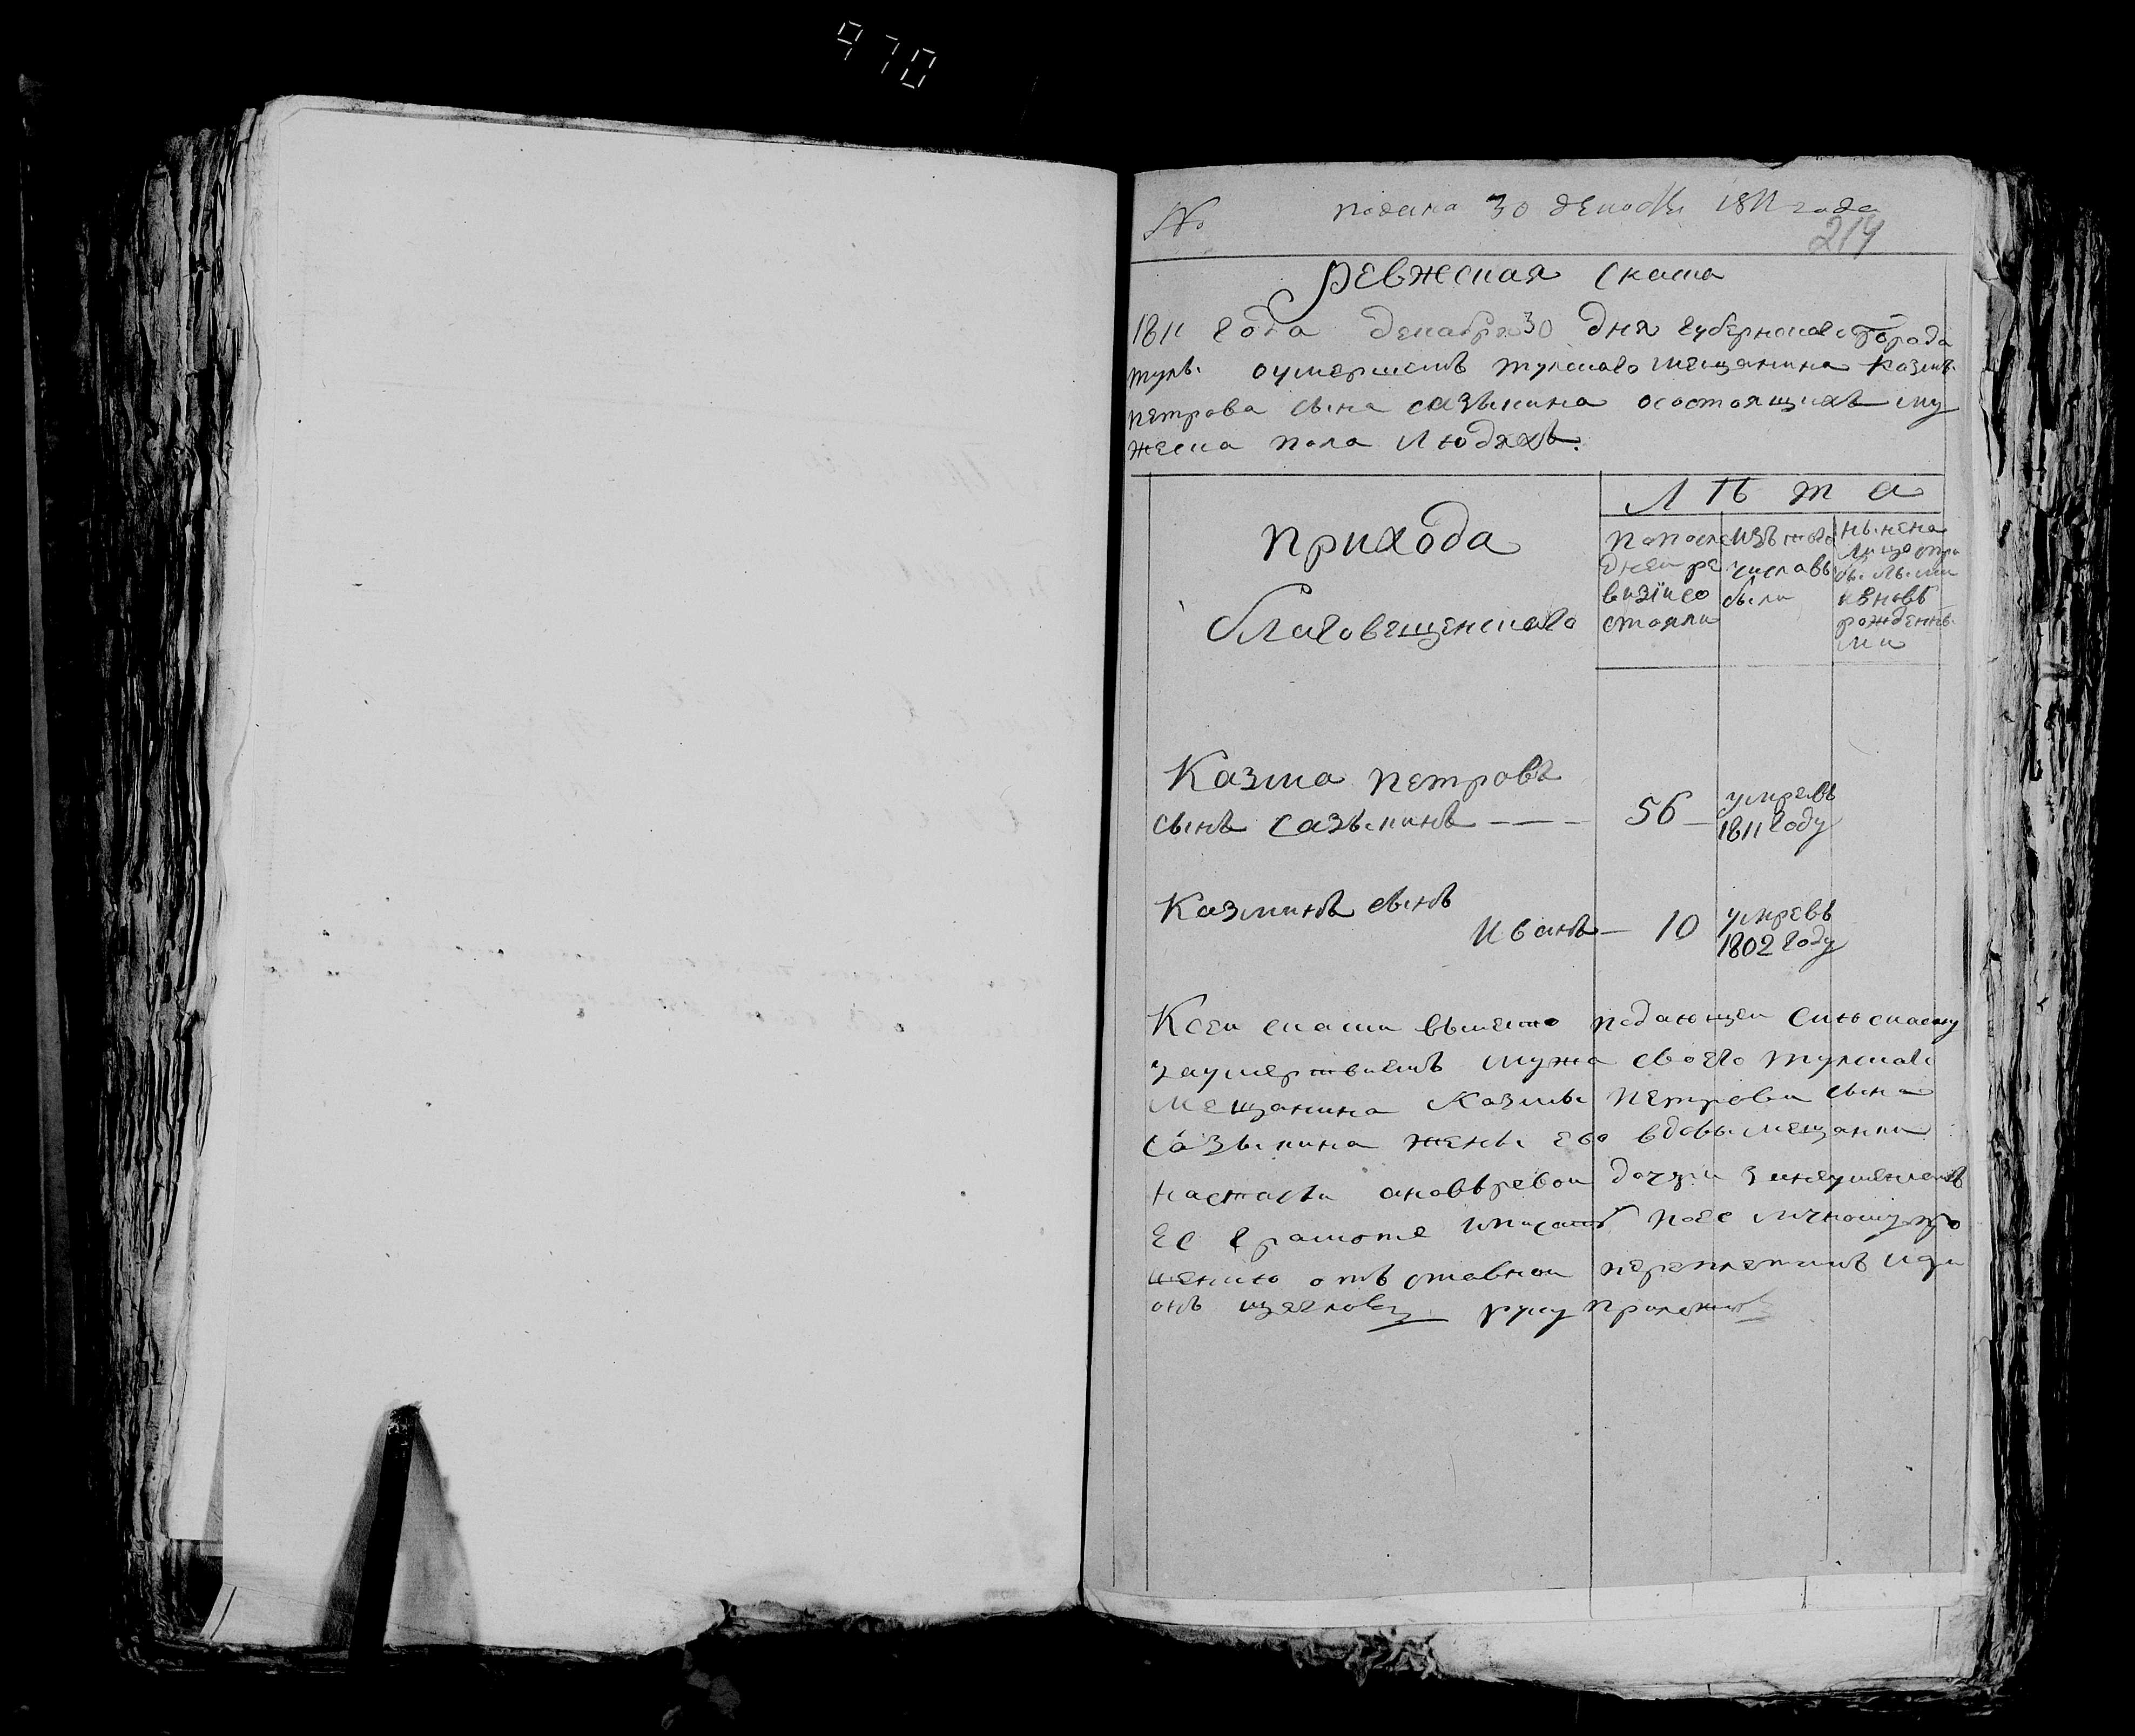 970
№ подана 30 декабр 1811 года
214
ревжская скаска
1811 года декабря 30 дня губернскаго города
тулы оумершемъ тулскаго мещанина казмы
петрова сына сазыкина осостоящихъ му
жеска пола людяхъ.
прихода
благовещенскаго
Лѣта
попосле
дней ре
визїи со
стояли
изъ того
числа вы
были
нынена
лицо
былыми
ивновь
рожденны
ми
Казма петровъ
сынъ Сазыкинъ — — — 56 — умревъ
1811 году
Казминъ сынъ
Иванъ — 10 умревъ
1802 году
Ксей скаски вместо подающей сию скаску
заумертвиемъ мужа своего тулскаго
мещанина Казмы петрова сына
сазыкина жены его вдовы мещанки
настасьи дочери
ее грамоте поее личному про
шению отъ ставной
онъ руку приложилъ